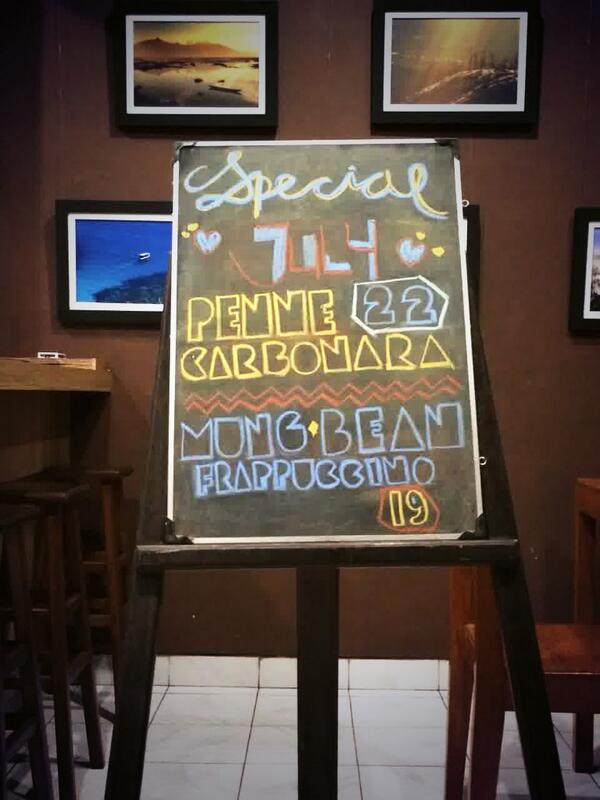 Special
JULY
PENNE 22
CARBONARA
MUNG BEAN
FRAPPUCCINO
19